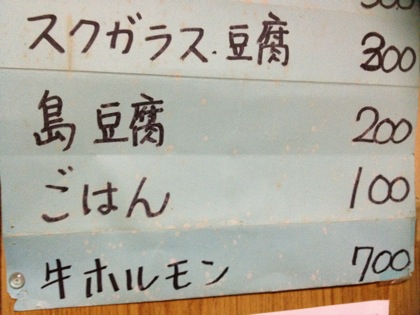 スクガラス.豆腐 300
島豆腐 200
ごはん 100
牛ホルモン 700